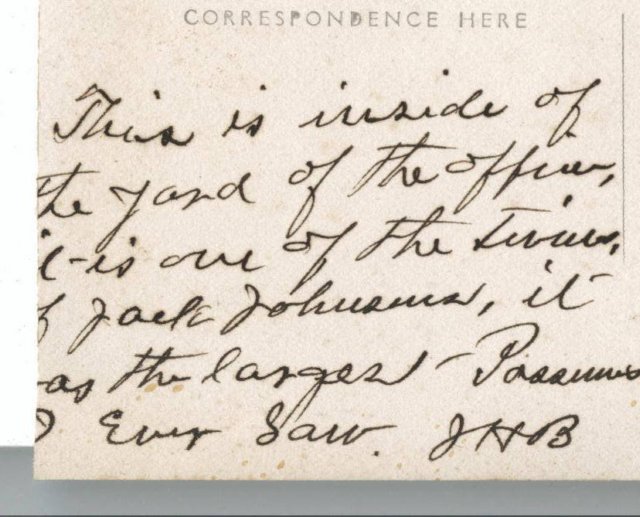 CORRESPONDENCE HERE
This is inside of
the yard of the office,
it is one of the twins,
of Jack Johnsons, it
was the largest Possums
I Ever Saw. JHB